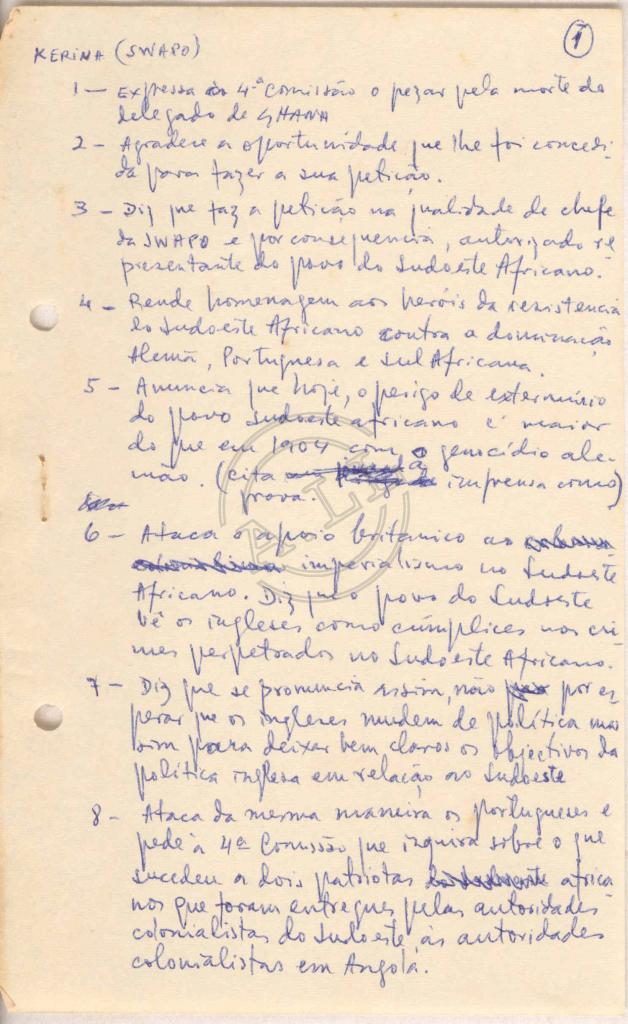 1
KERINA (SWAPO)
1 — Expressa à 4ª Comissão o pezar pela morte do
delegado de GHANA
2 - Agradece a oportunidade que lhe foi concedi-
da para fazer a sua petição.
3 - Diz que faz a petição na qualidade de chefe
da SWAPO e por consequencia, autorizado re-
presentante do povo do Sudoeste Africano.
4 - Rende homenagem aos heróis da rezistencia
do Sudoeste Africano contra a dominação
Alemã, Portuguesa e Sul Africana.
5 - Anuncia que hoje, o perigo de extermínio
do povo sudoeste africano é maior
do que em 1904 com o genocídio ale-
mão. (cita a imprensa como
prova.)
6 - Ataca o apoio britanico ao
imperialismo no Sudoeste
Africano. Diz que o povo do Sudoeste
vê os ingleses como cúmplices nos cri-
mes perpetrados no Sudoeste Africano.
7 - Diz que se pronuncia assim, não por es-
perar que os ingleses mudem de política mas
sim para deixar bem claros os objectivos da
política inglesa em relação ao Sudoeste
8 - Ataca da mesma maneira os portugueses e
pede à 4ª Comissão que inquira sobre o que
sucedeu a dois patriotas africa-
nos que foram entregues pelas autoridades
colonialistas do Sudoeste, às autoridades
colonialistas em Angola.
ALH